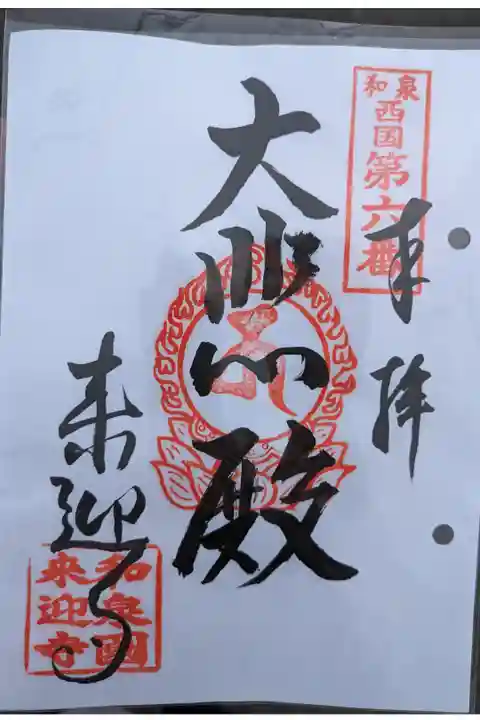 和泉
西国第六番
奉拝
大悲殿
来迎寺
和泉國
来迎寺